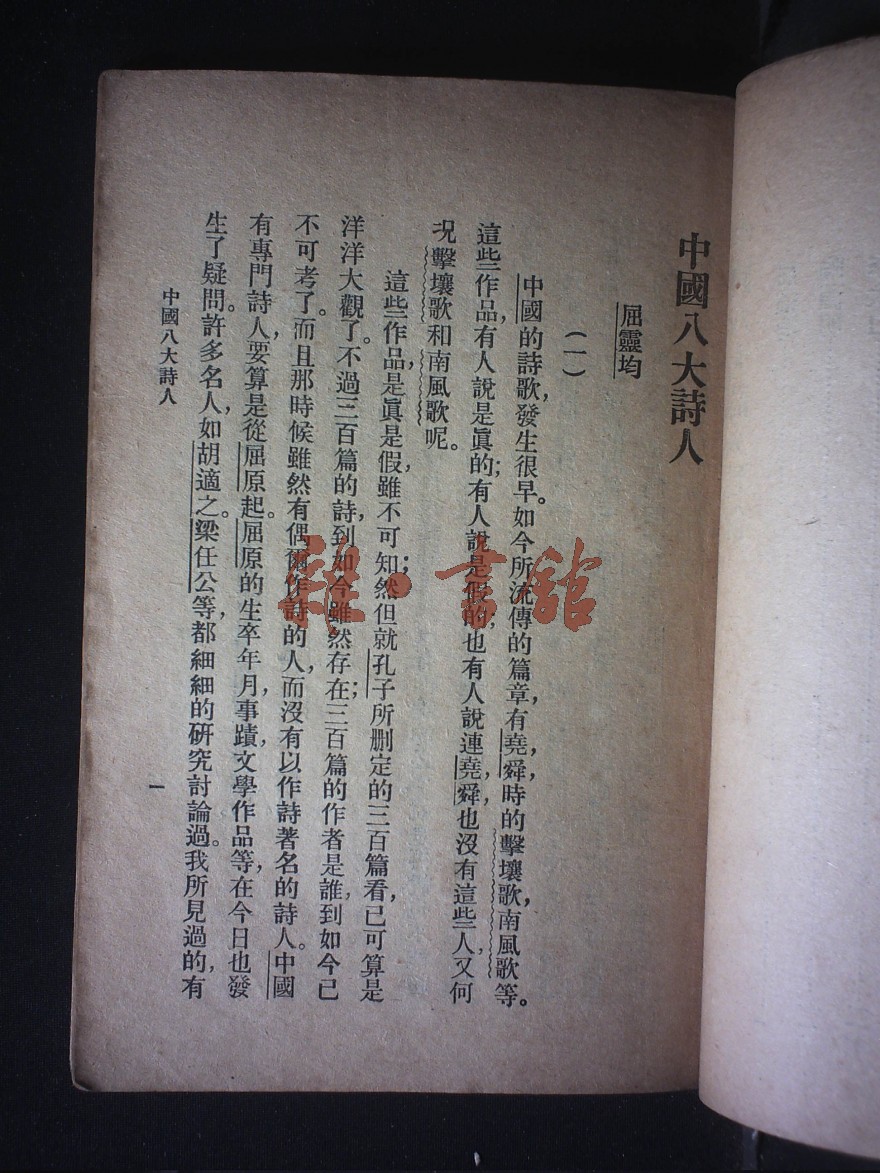 中國八大詩人
屈靈均
(一)
中國的詩歌，發生很早。如今所流傳的篇章，有堯，舜，時的擊壤歌，南風歌等。
這些作品，有人說是眞的；有人說是假的；也有人說連堯，舜，也沒有這些人，又何
況擊壤歌和南風歌呢。
這些作品，是眞是假，雖不可知；然但就孔子所删定的三百篇看，已可算是
洋洋大觀了。不過三百篇的詩，到如今雖然存在；三百篇的作者是誰，到如今已
不可考了。而且那時候雖然有偶爾作詩的人，而沒有以作詩著名的詩人。中國
有專門詩人，要算是從屈原起。屈原的生卒年月，事蹟，文學作品等，在今日也發
生了疑問。許多名人，如胡適之。梁任公等，都細細的研究討論過。我所見過的，有
中國八大詩人
一
雜·書舘